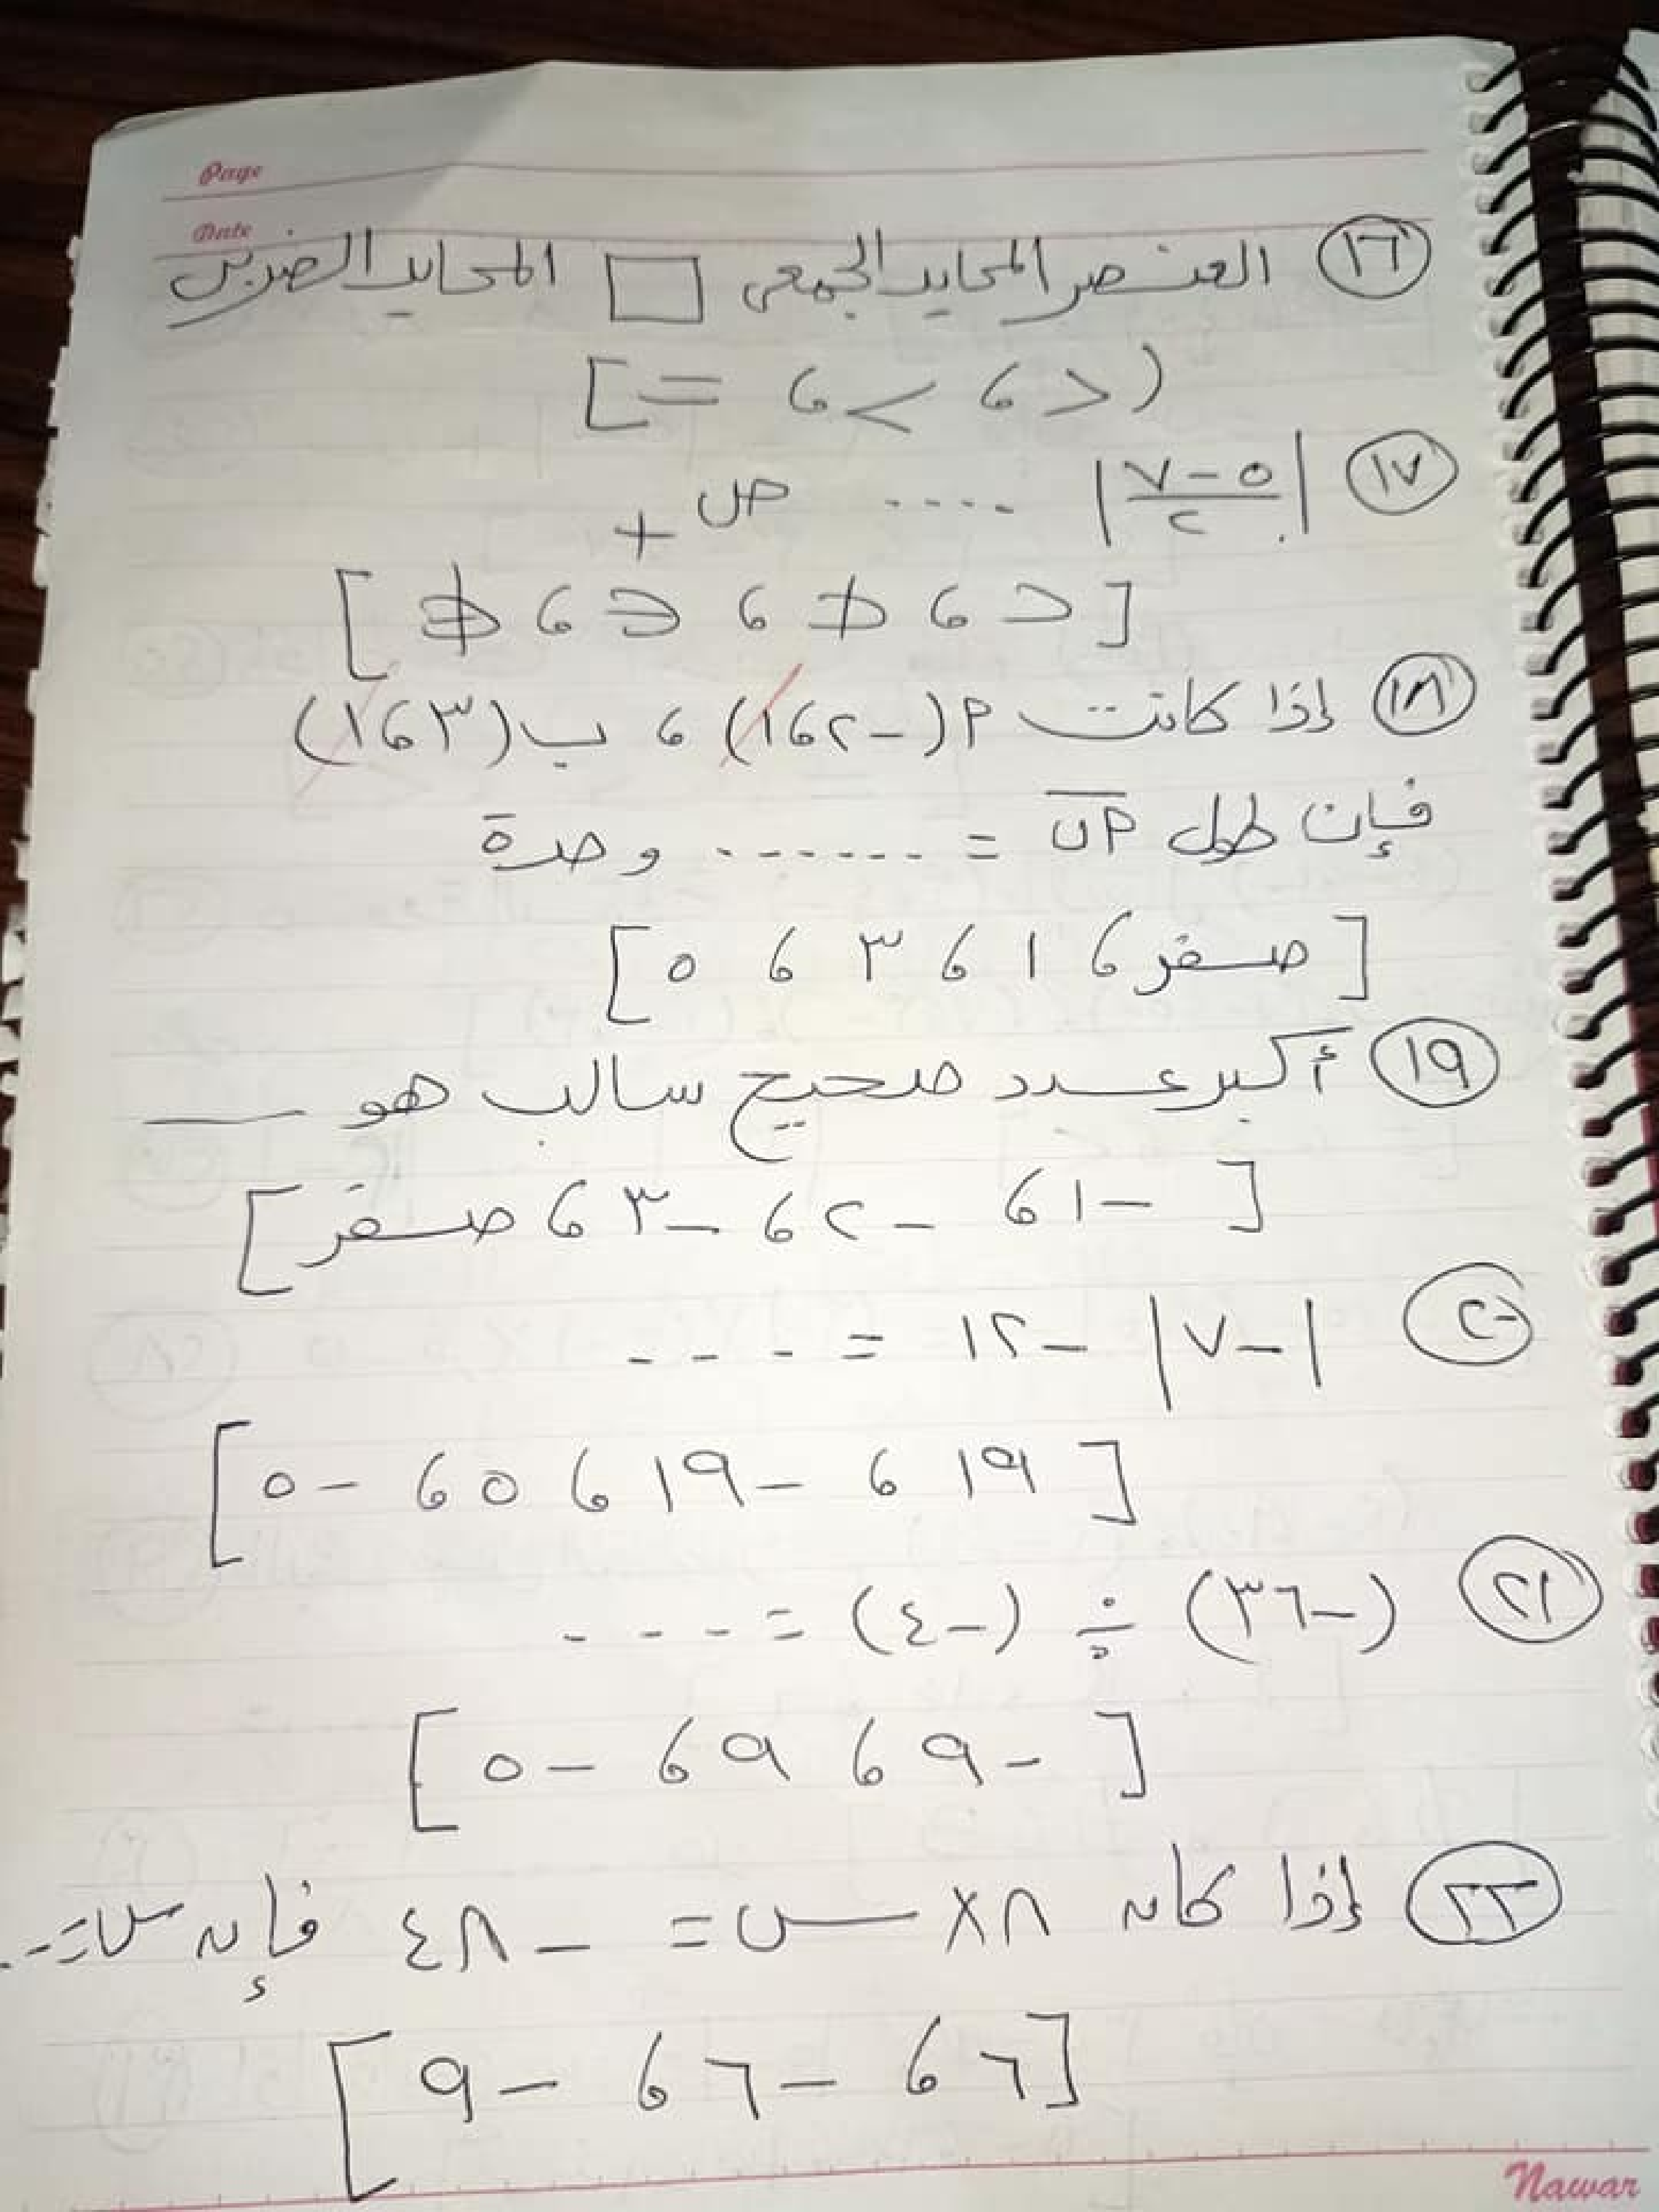 Page
Date
١٦ العنصر المحايد الجمعى □ المحايد الضربى
( > ، < ، = ]
١٧ |٥ - ٧ / ٢| .... ص+
[ ⊂ ، ⊄ ، ∈ ، ∉ ]
١٨ إذا كانت أ (-٢ ، ١) ، ب (٣ ، ١)
فإن طول أب = ....... وحدة
[ صفر ، ١ ، ٣ ، ٥ ]
١٩ أكبر عدد صحيح سالب هو ــــ
[ -١ ، -٢ ، -٣ ، صفر ]
٢٠ |-٧| -١٢ = ----
[ ١٩ ، -١٩ ، ٥ ، -٥ ]
٢١ (-٣٦) ÷ (-٤) = ----
[ -٩ ، ٩ ، -٥ ]
٢٢ إذا كان ٨ × س = -٤٨ فإن س = ..
[ ٦ ، -٦ ، -٩ ]
Nawar